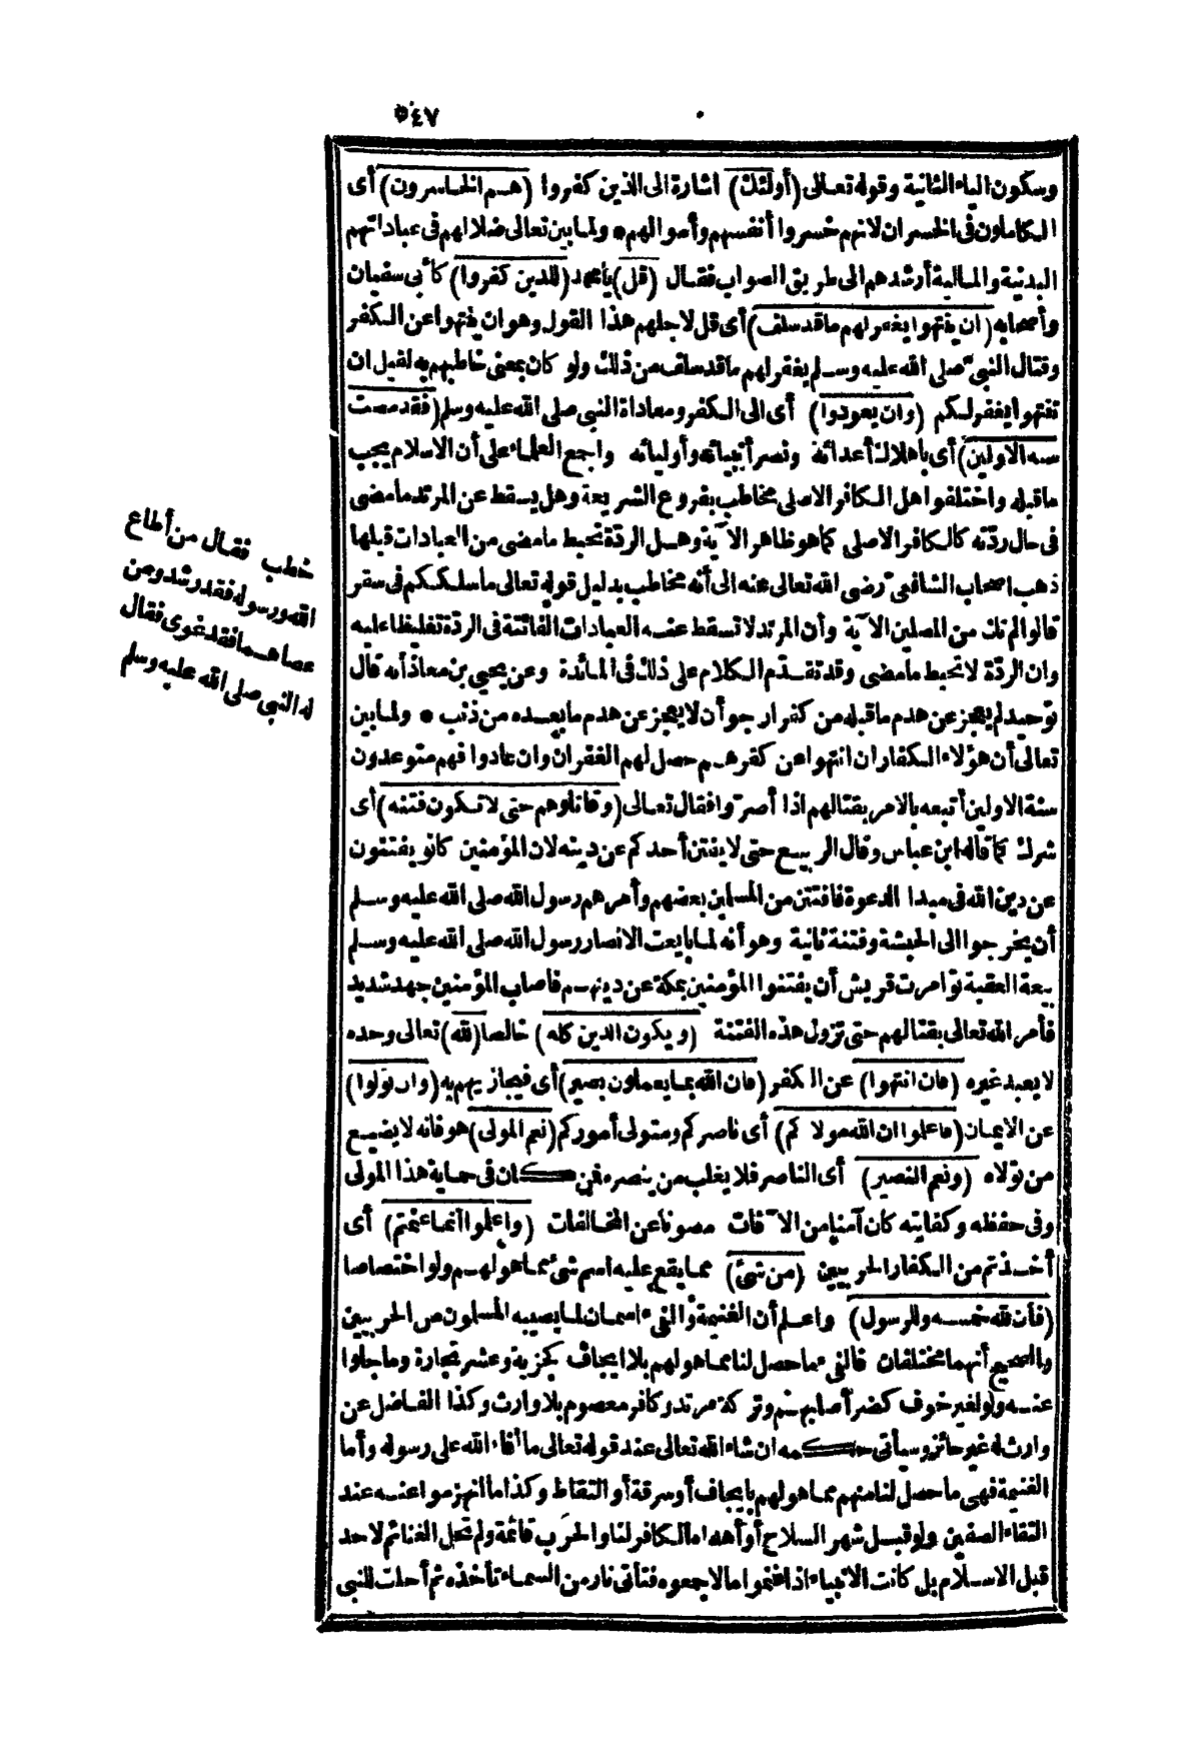 ٥٤٧
وسكون الياء الثانية وقوله تعالى (أولئك) اشارة الى الذين كفروا (هم الخاسرون) أى
الكاملون فى الخسران لانهم خسروا أنفسهم وأموالهم * ولما بين تعالى ضلالهم فى عباداتهم
البدنية والمالية أرشدهم الى طريق الصواب فقال (قل) يا محمد (للذين كفروا) كأبى سفيان
وأصحابه (ان ينتهوا يغفر لهم ما قد سلف) أى قل لاجلهم هذا القول وهو ان ينتهوا عن الكفر
وقتال النبى صلى الله عليه وسلم يغفر لهم ما قد سلف من ذلك ولو كان بمعنى خاطبهم به لقيل ان
تنتهوا يغفر لكم (وان يعودوا) أى الى الكفر ومعاداة النبى صلى الله عليه وسلم (فقد مضت
سنة الاولين) أى باهلاك أعدائه ونصر أنبيائه وأوليائه واجمع العلماء على أن الاسلام يجب
ما قبله واختلفوا هل الكافر الاصلى مخاطب بفروع الشريعة وهل يسقط عن المرتد ما مضى
فى حال ردّته كالكافر الاصلى كما هو ظاهر الآية وهل الردّة تحبط ما مضى من العبادات قبلها
ذهب اصحاب الشافعىّ رضى الله تعالى عنه الى أنه مخاطب بدليل قوله تعالى ما سلككم فى سقر
قالوا لم نك من المصلين الآية وأن المرتد لا تسقط عنه العبادات الفائتة فى الردّة تغليظا عليه
وان الردّة لا تحبط ما مضى وقد تقدّم الكلام على ذلك فى المائدة وعن يحيى بن معاذ أنه قال
توحيد لم يعجز عن هدم ما قبله من كفر ارجو أن لا يعجز عن هدم ما بعده من ذنب * ولما بين
تعالى أن هؤلاء الكفار ان انتهوا عن كفرهم حصل لهم الغفران وان عادوا فهم متوعدون
سنة الاولين أتبعه بالامر بقتالهم اذا أصرّوا فقال تعالى (وقاتلوهم حتى لا تكون فتنة) أى
شرك كما قاله ابن عباس وقال الربيع حتى لا يفتن أحدكم عن دينه لان المؤمنين كانوا يفتنون
عن دين الله فى مبدا الدعوة فافتتن من المسلمين بعضهم وأمرهم رسول الله صلى الله عليه وسلم
أن يخرجوا الى الحبشة وفتنة ثانية وهو أنه لما بايعت الانصار رسول الله صلى الله عليه وسلم
بيعة العقبة توامرت قريش أن يفتنوا المؤمنين بمكة عن دينهم فاصاب المؤمنين جهد شديد
فأمر الله تعالى بقتالهم حتى تزول هذه الفتنة (ويكون الدين كله) خالصا (لله) تعالى وحده
لا يعبد غيره (فان انتهوا) عن الكفر (فان الله بما يعملون بصير) أى فيجازيهم به (وان تولوا)
عن الايمان (فاعلموا ان الله مولاكم) أى ناصركم ومتولى أموركم (نعم المولى) هو فانه لا يضيع
من تولاه (ونعم النصير) أى الناصر فلا يغلب من ينصره فمن كان فى حماية هذا المولى
وفى حفظه وكفايته كان آمنا من الآفات مصونا عن المخالفات (واعلموا أنما غنمتم) أى
أخذتم من الكفار الحربيين (من شئ) مما يقع عليه اسم شئ مما هو لهم ولو اختصاصا
(فأن لله خمسه وللرسول) واعلم أن الغنيمة والفىء اسمان لما يصيبه المسلمون من الحربيين
والصحيح أنهما مختلفان فالفىء ما حصل لنا مما هو لهم بلا ايجاف كجزية وعشر تجارة وما جلوا
عنه ولو لغير خوف كضر أصابهم وتركة مرتد وكافر معصوم بلا وارث وكذا الفاضل عن
وارث له غير حائز وسيأتى حكمه ان شاء الله تعالى عند قوله تعالى ما أفاء الله على رسوله وأما
الغنيمة فهى ما حصل لنا منهم مما هو لهم بايجاف أو سرقة أو التقاط وكذا ما انهزموا عنه عند
التقاء الصفين ولو قبل شهر السلاح أو أهداه الكافر لنا والحرب قائمة ولم تحل الغنائم لاحد
قبل الاسلام بل كانت الانبياء اذا غنموا مالا جمعوه فتأتى نار من السماء تأخذه ثم أحلت للنبى
خطب فقال من أطاع
الله ورسوله فقد رشد ومن
عصاهما فقد غوى فقال
له النبى صلى الله عليه وسلم